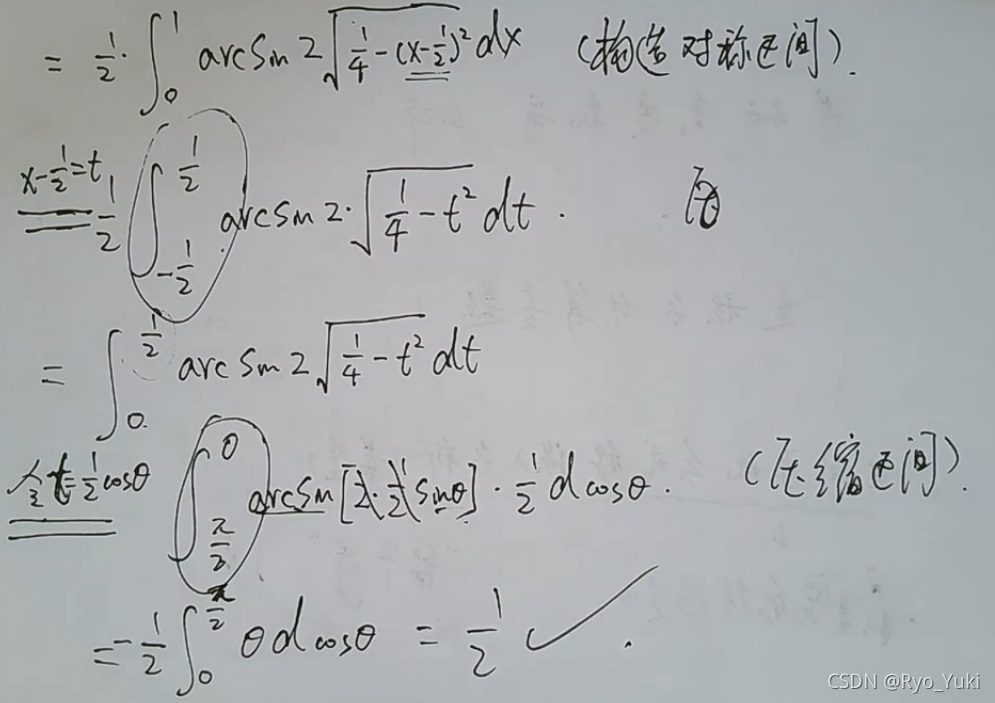 = 1/2 · ∫₀¹ arcsin 2√(1/4 - (x - 1/2)²) dx (构造对称区间).
x - 1/2 = t 1/2 ∫_{-1/2}^{1/2} arcsin 2·√(1/4 - t²) dt .
= ∫₀^{1/2} arcsin 2√(1/4 - t²) dt
令 t = 1/2 cosθ ∫_{π/2}^{0} arcsin [2 · 1/2 |sinθ|] · 1/2 d cosθ . (压缩区间).
= - 1/2 ∫₀^{π/2} θ d cosθ = 1/2 ✓ .
CSDN @Ryo_Yuki